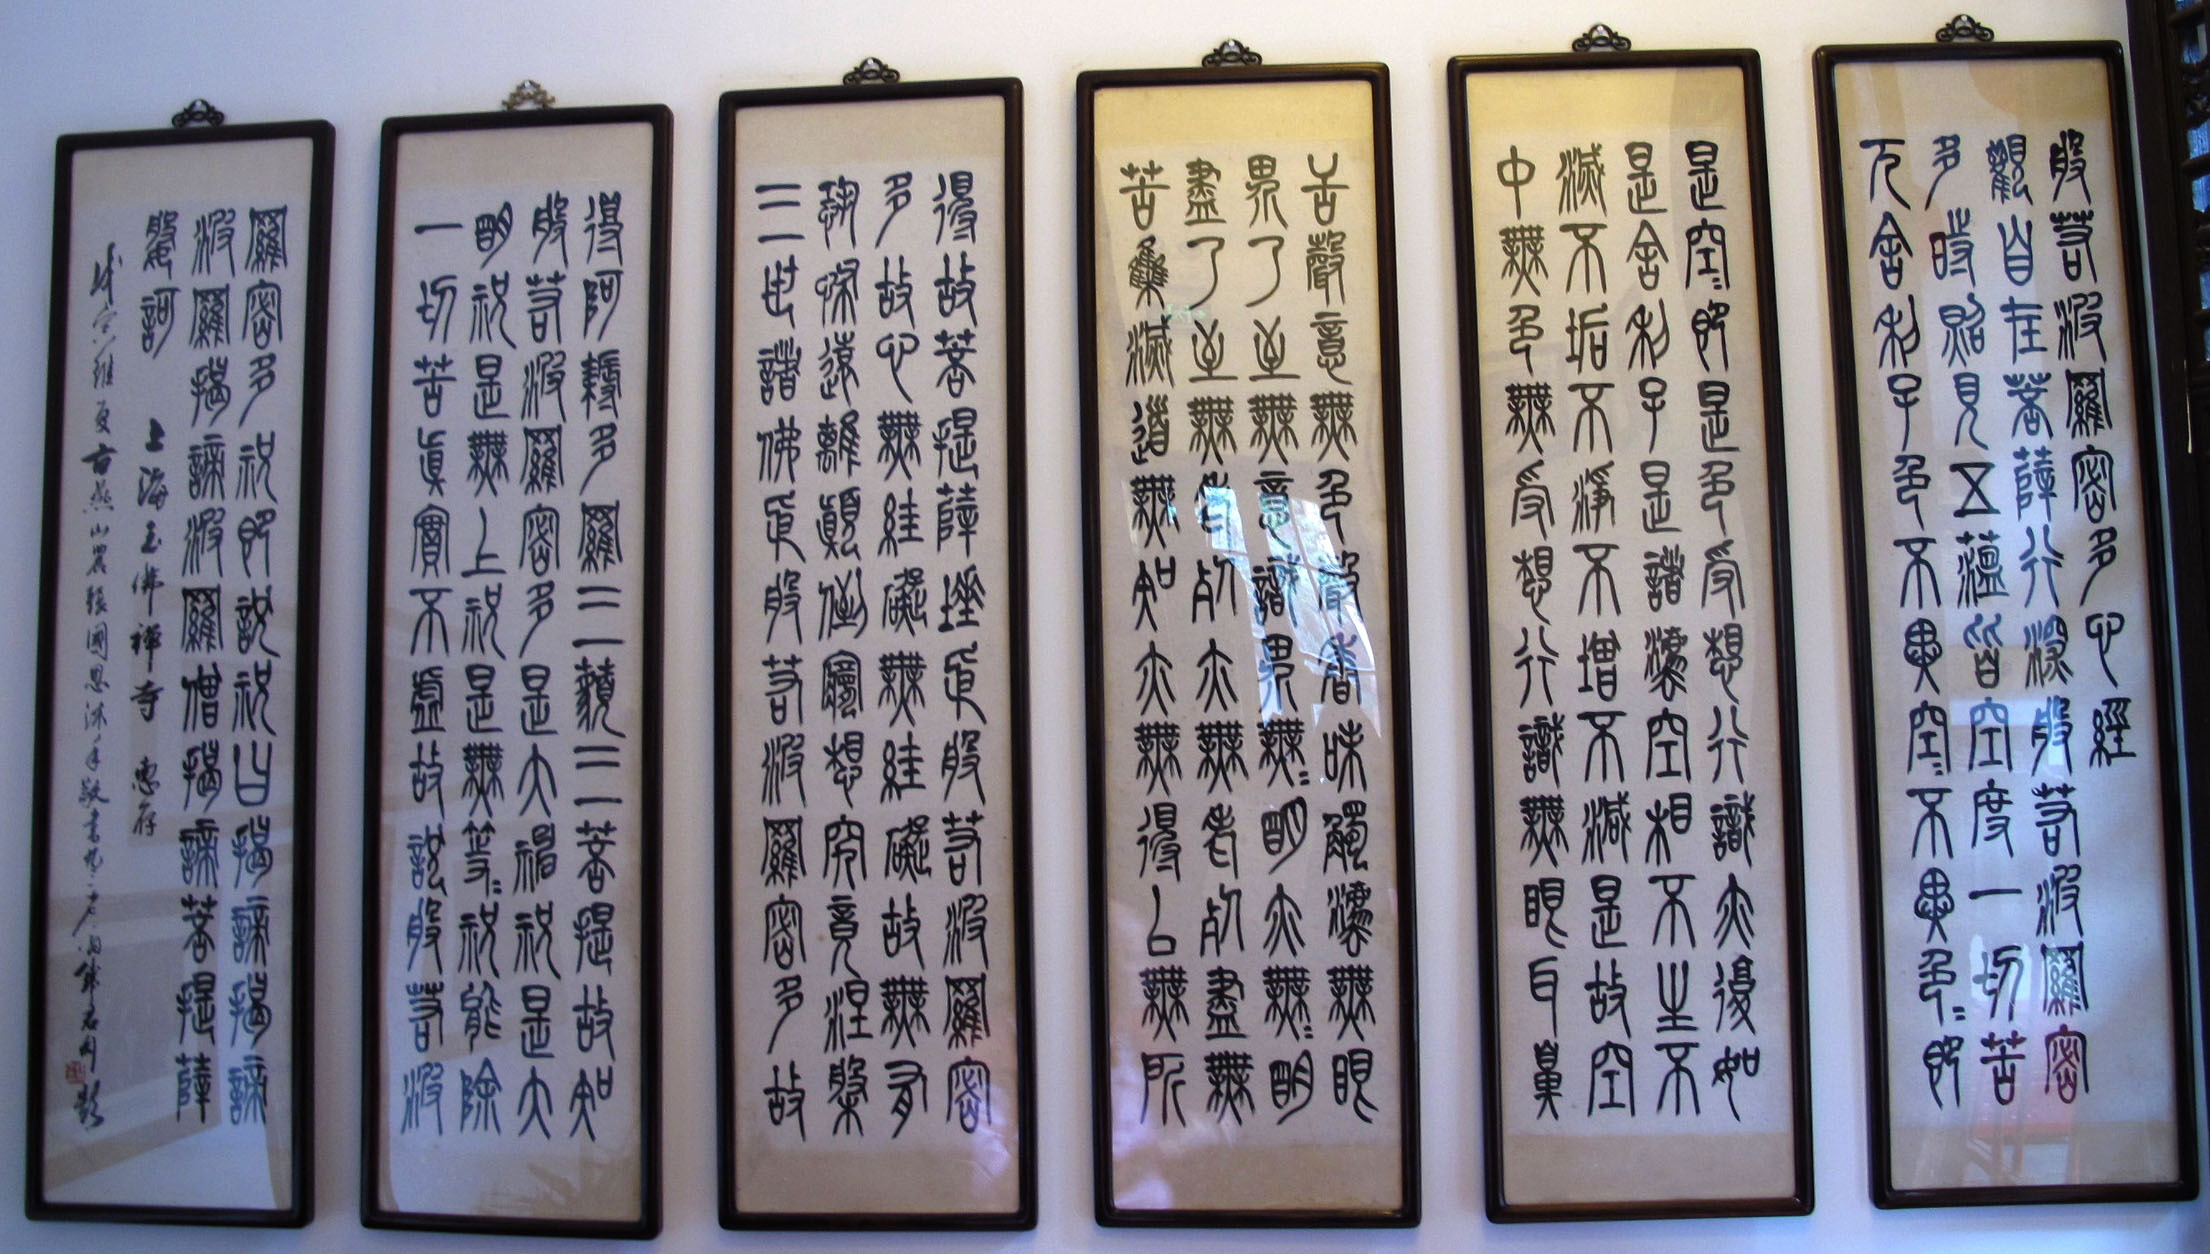 般若波羅密多心經
觀自在菩薩行深般若波羅密
多時照見五蘊皆空度一切苦
厄舍利子色不異空〻不異色〻即
是空〻即是色受想行識亦復如
是舍利子是諸灋空相不生不
滅不垢不淨不增不減是故空
中無色無受想行識無眼耳鼻
舌聲意無色聲香味觸灋無眼
界乃至無意識界無〻明亦無〻明
盡乃至無老死亦無老死盡無
苦集滅道無知亦無得以無所
得故菩提薩埵依般若波羅密
多故心無罣礙無罣礙故無有
恐怖遠離顛倒夢想究竟涅槃
三世諸佛依般若波羅密多故
得阿耨多羅三藐三菩提故知
般若波羅密多是大神祝是大
明祝是無上祝是無等〻祝能除
一切苦真實不虛故說般若波
羅密多祝即說祝曰揭諦揭諦
波羅揭諦波羅僧揭諦菩提薩
婆訶 上海玉佛禪寺 惠存
古燕山農張國恩沐手敬書